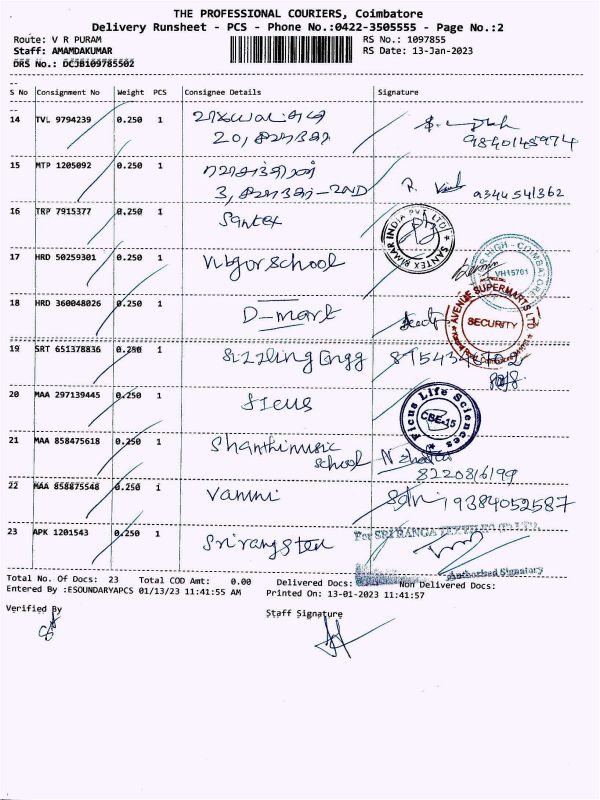 THE PROFESSIONAL COURIERS, Coimbatore
Delivery Runsheet - PCS - Phone No.:0422-3505555 - Page No.:2
Route: V R PURAM
RS No.: 1097855
Staff: AMAMDAKUMAR
RS Date: 13-Jan-2023
DRS No.: DCJB109785502
S No Consignment No Weight PCS Consignee Details Signature
14 TVL 9794239 0.250 1
20,
15 MTP 1205092 0.250 1
3, 9344541362
16 TRP 7915377 0.250 1 Santex
SANTEX BIMAR INDIA PVT LTD
17 HRD 50259301 0.250 1 school
VH15701
18 HRD 360048026 0.250 1 D-mart
AVENUE SUPERMARTS LTD
SECURITY
19 SRT 651378836 0.250 1 Sizzling Engg
20 MAA 297139445 0.250 1 ficus
Ficus Life Sciences
CBE-15
21 MAA 858475618 0.250 1 Shanthi music
school
8220816199
22 MAA 858875548 0.250 1 Vammi 9384052587
23 APK 1201543 0.250 1
For SRI RANGA TEXTILES (P) LTD
Authorised Signatory
Total No. Of Docs: 23 Total COD Amt: 0.00 Delivered Docs: Non Delivered Docs:
Entered By :ESOUNDARYAPCS 01/13/23 11:41:55 AM Printed On: 13-01-2023 11:41:57
Verified By Staff Signature